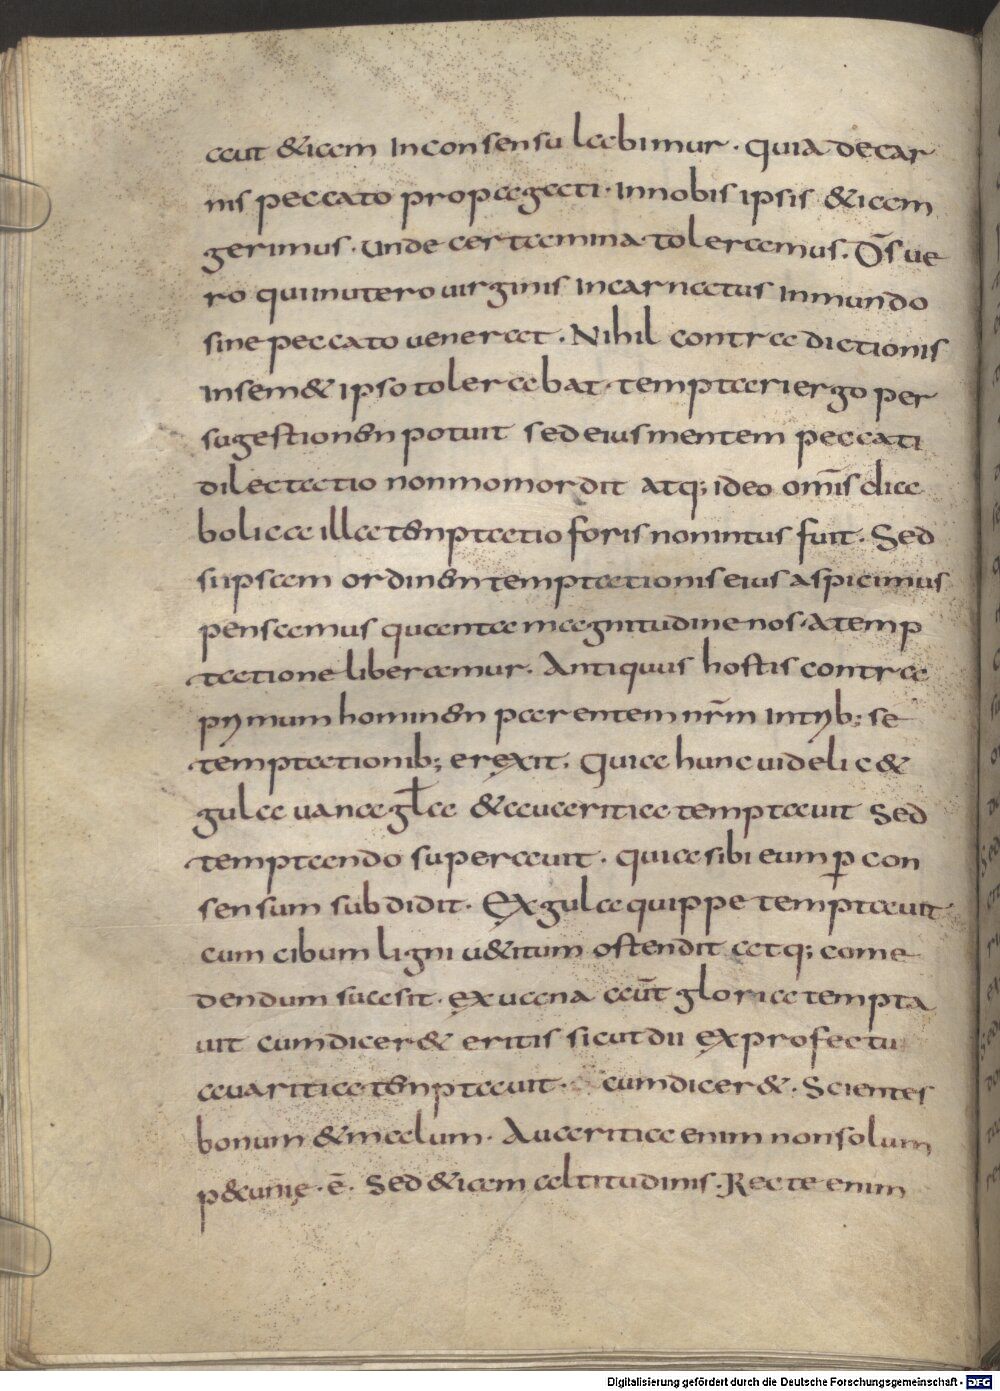 aut &iam in consensu labimur · quia de car
nis peccato propagati · in nobis ipsis &iam
gerimus · unde certamina toleramus · Ds̄ ue
ro qui in utero uirginis incarnatus in mundo
sine peccato uenerat · Nihil contradictionis
in sem& ipso tolerabat · temptari ergo per
sugestionem potuit sed eius mentem peccati
dilectatio non momordit atq; ideo om̄is dia
bolica illa temptatio foris non intus fuit · Sed
si ipsam ordinem temptationis eius aspicimus
pensamus quanta magnitudine nos · a temp
tatione liberamur · Antiquus hostis contra
pymum hominem parentem nr̄m in tyb; se
temptationib; erexit · Quia hunc uidelic&
gula uana gl̄a & auaritia temptauit Sed
temptando superauit · quia sibi eum p̱ con
sensum subdidit · Ex gula quippe temptauit
cum cibum ligni u&itum ostendit atq; come
dendum suasit · ex uana aūt gloria tempta
uit cum dicer& eritis sicut dii ex profectu
auaritia temptauit · cum dicer& · Scientes
bonum & malum · Auaritia enim non solum
p&unię · ē · Sed &iam altitudinis · Recte enim
Digitalisierung gefördert durch die Deutsche Forschungsgemeinschaft - DFG